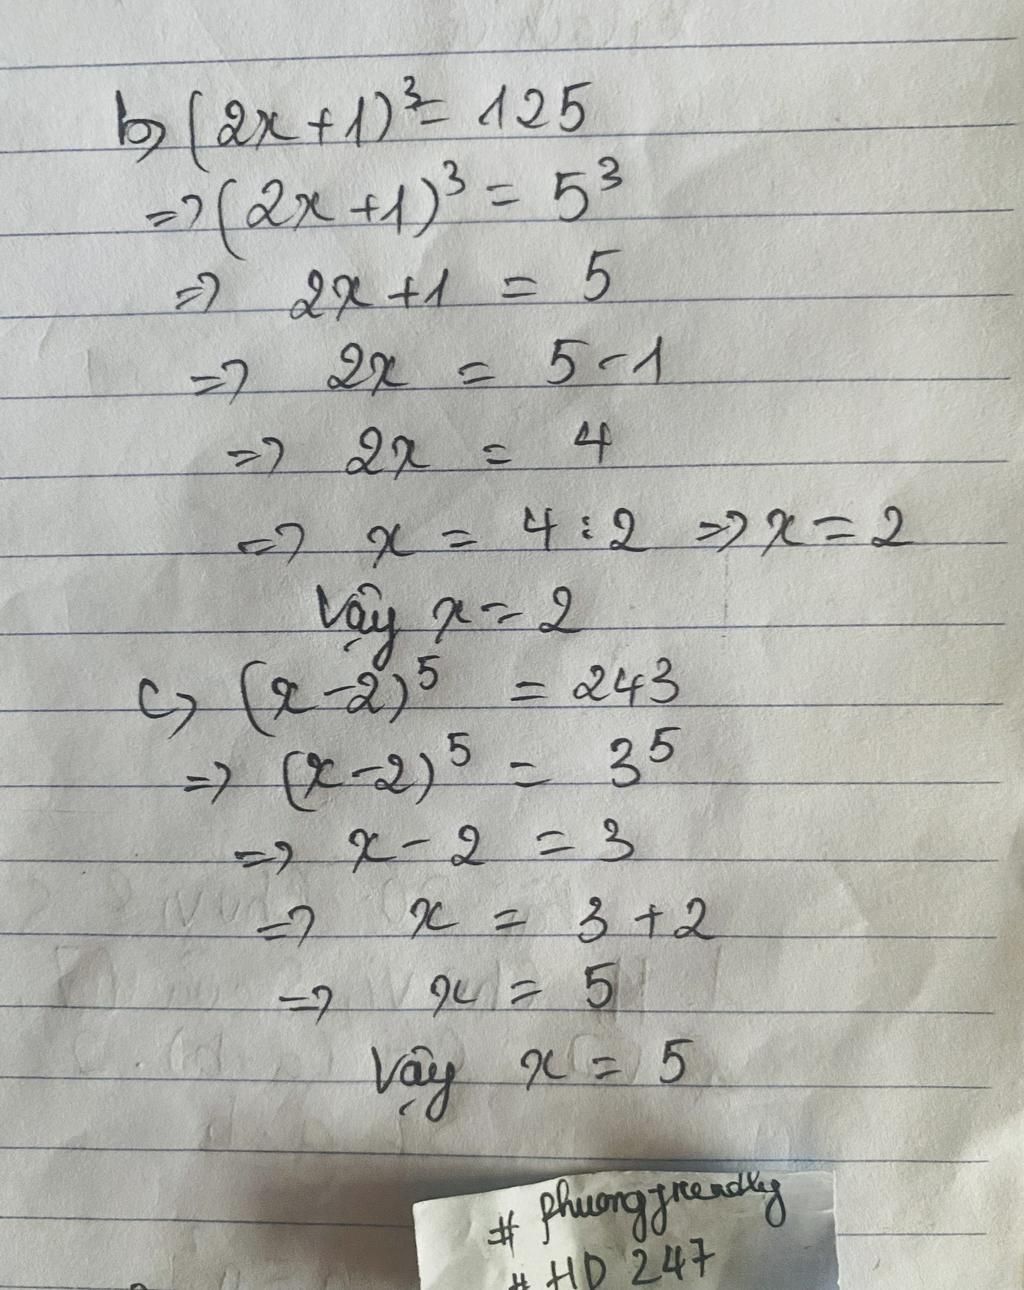 b, (2x+1)³ = 125
=> (2x+1)³ = 5³
=> 2x+1 = 5
=> 2x = 5-1
=> 2x = 4
=> x = 4:2 => x = 2
Vậy x = 2
c, (x-2)⁵ = 243
=> (x-2)⁵ = 3⁵
=> x-2 = 3
=> x = 3+2
=> x = 5
Vậy x = 5
# phuongfriendly
# HD 247